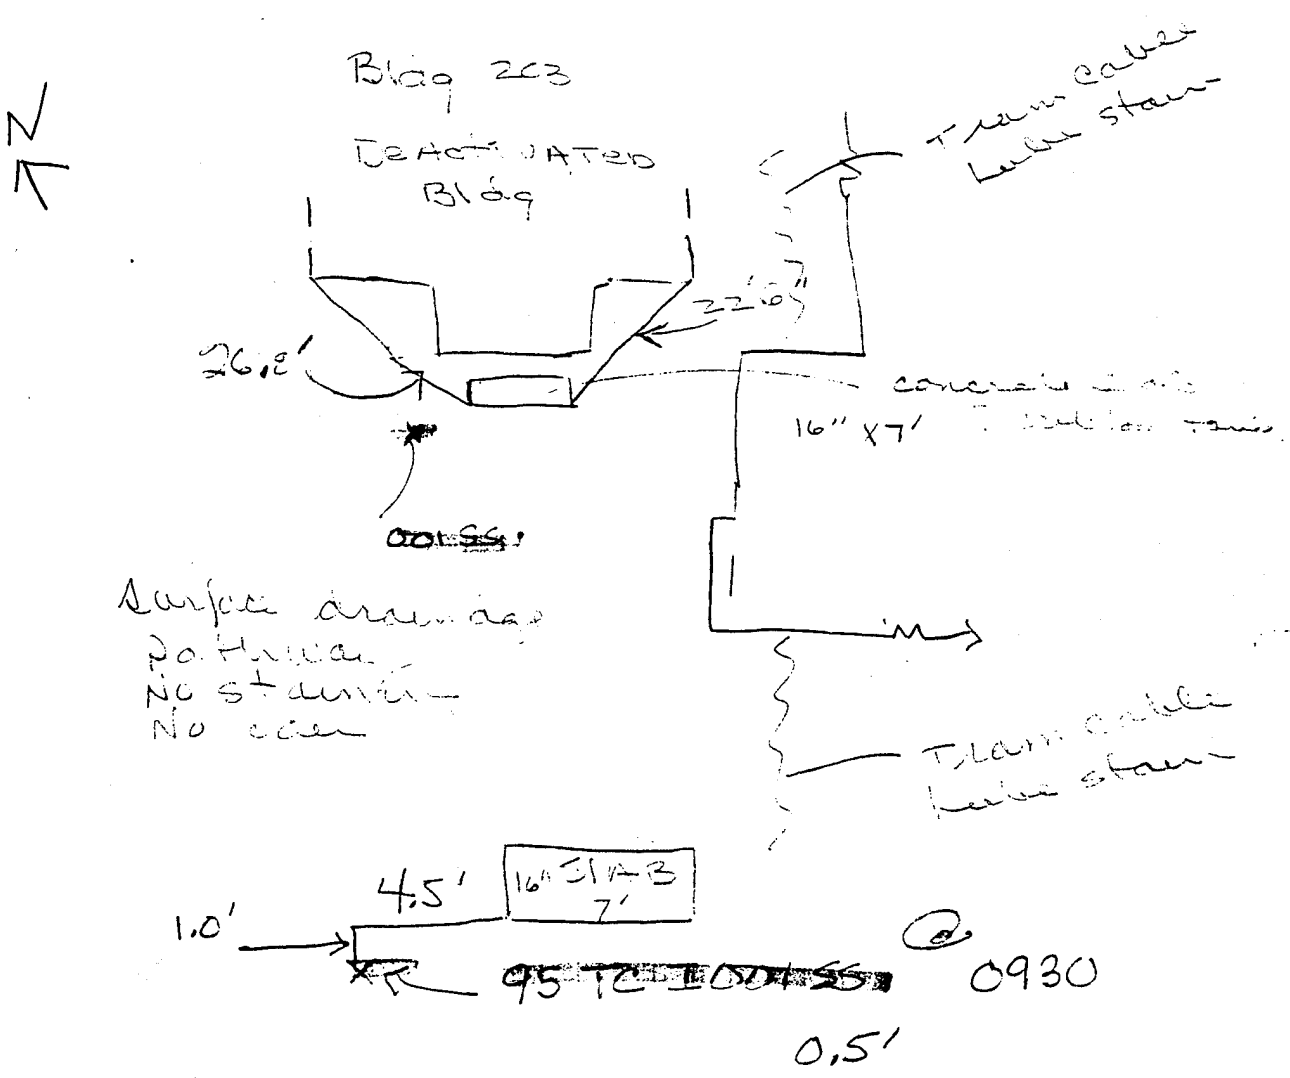 N
Bldg 203
DeActivATED
Bldg
Tram cable
lube stain
22'6"
26.2'
concrete
16" x 7'
001SS
Surface drainage
pathway
No staining
No odor
Tram cable
lube stain
16" SlAB
7'
4.5'
1.0'
95 TC I 001 SS @ 0930
0.5'